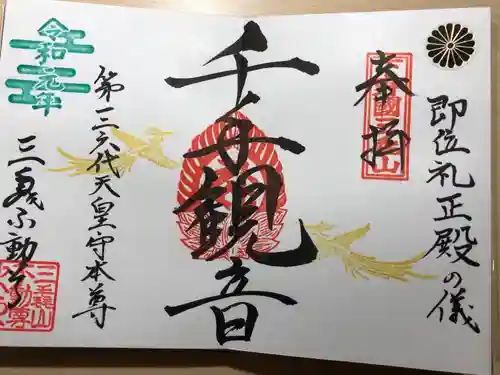 即位礼正殿の儀
奉拝
千手観音
第一二六代天皇守本尊
令和元年
三毳不動尊